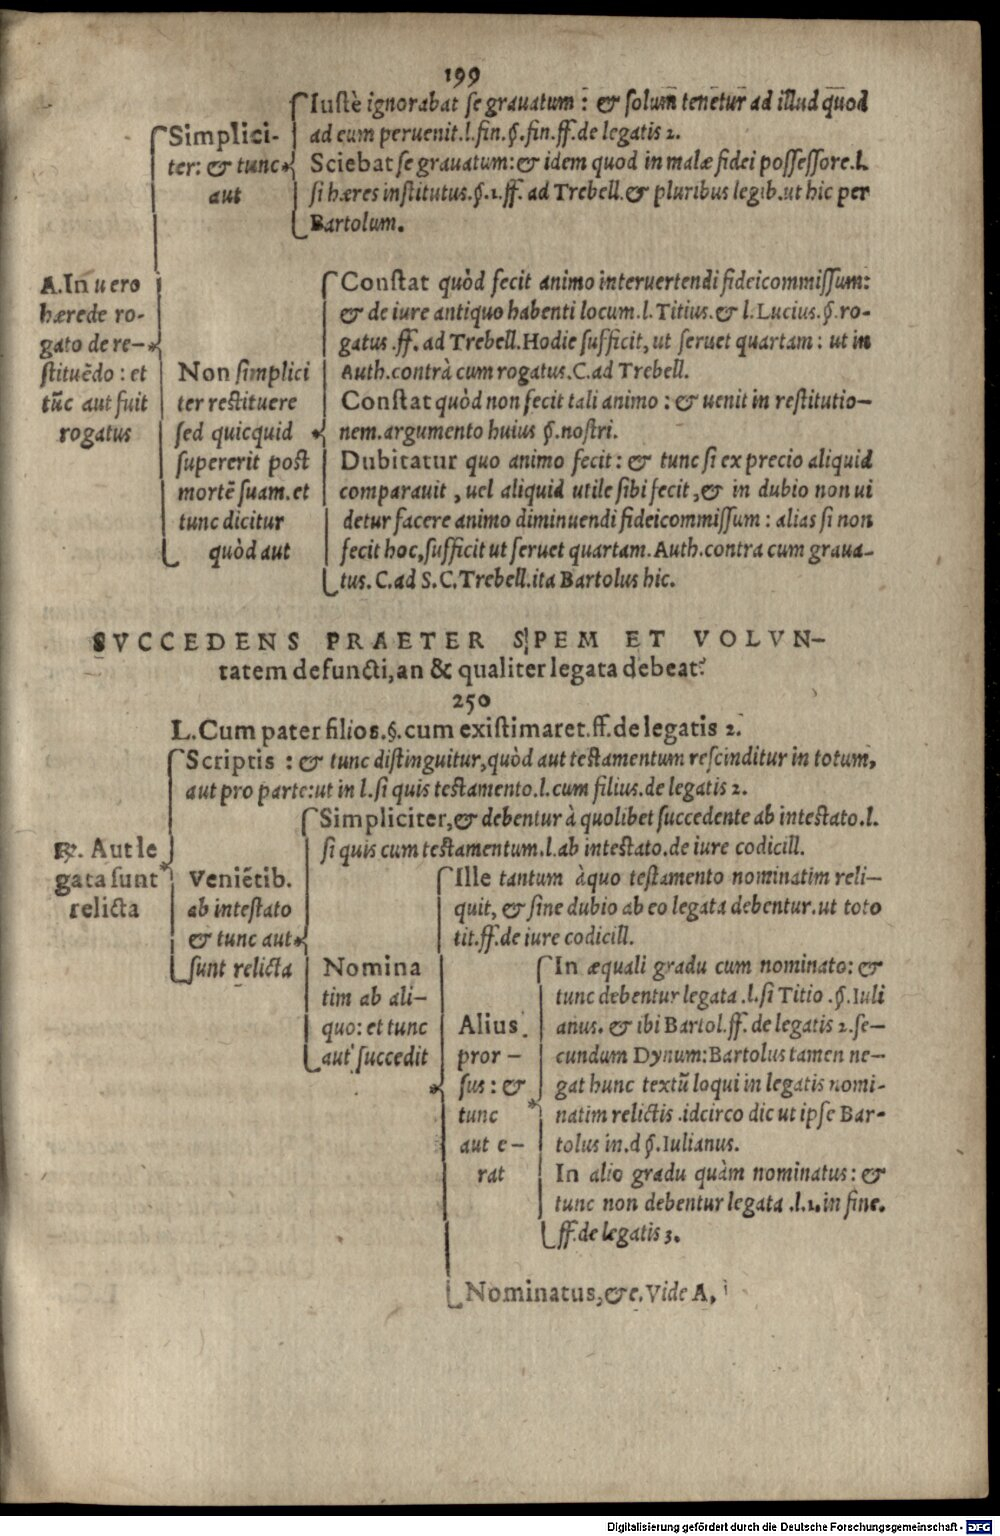 199
Iustè ignorabat se grauatum : & solum tenetur ad illud quod
ad eum peruenit.l.fin.§.fin.ff.de legatis 2.
Simplici-
ter: & tunc
aut
Sciebat se grauatum:& idem quod in malæ fidei possessore.l.
si hæres institutus.§.1.ff. ad Trebell.& pluribus legib.ut hic per
Bartolum.
A.In uero
hærede ro-
gato de re-
stituēdo : et
tūc aut fuit
rogatus
Non simplici
ter restituere
sed quicquid
supererit post
mortē suam.et
tunc dicitur
quòd aut
Constat quòd fecit animo interuertendi fideicommissum:
& de iure antiquo habenti locum.l.Titius.& l.Lucius.§.ro-
gatus.ff.ad Trebell.Hodie sufficit, ut seruet quartam : ut in
Auth.contrà cum rogatus.C.ad Trebell.
Constat quòd non fecit tali animo : & uenit in restitutio-
nem.argumento huius §.nostri.
Dubitatur quo animo fecit : & tunc si ex precio aliquid
comparauit , uel aliquid utile sibi fecit ,& in dubio non ui
detur facere animo diminuendi fideicommissum : alias si non
fecit hoc,sufficit ut seruet quartam.Auth.contra cum graua-
tus.C.ad S.C.Trebell.ita Bartolus hic.
SVCCEDENS PRAETER SPEM ET VOLVN-
tatem defuncti,an & qualiter legata debeat?
250
L.Cum pater filios.§.cum existimaret.ff.de legatis 2.
Scriptis : & tunc distinguitur,quòd aut testamentum rescinditur in totum,
aut pro parte:ut in l.si quis testamento.l.cum filius.de legatis 2.
℞. Aut le
gata sunt
relicta
Veniētib.
ab intestato
& tunc aut
sunt relicta
Simpliciter,& debentur à quolibet succedente ab intestato.l.
si quis cum testamentum.l.ab intestato.de iure codicill.
Nomina
tim ab ali-
quo: et tunc
aut succedit
Ille tantum àquo testamento nominatim reli-
quit, & sine dubio ab eo legata debentur.ut toto
tit.ff.de iure codicill.
Alius
pror-
sus : &
tunc
aut e-
rat
In æquali gradu cum nominato: &
tunc debentur legata .l.si Titio .§.Iuli
anus. & ibi Bartol.ff.de legatis 2.se-
cundum Dynum:Bartolus tamen ne-
gat hunc textū loqui in legatis nomi-
natim relictis .idcirco dic ut ipse Bar-
tolus in.d §.Iulianus.
In alio gradu quàm nominatus: &
tunc non debentur legata .l.1.in fine.
ff.de legatis 3.
Nominatus,&c.Vide A,
Digitalisierung gefördert durch die Deutsche Forschungsgemeinschaft - DFG